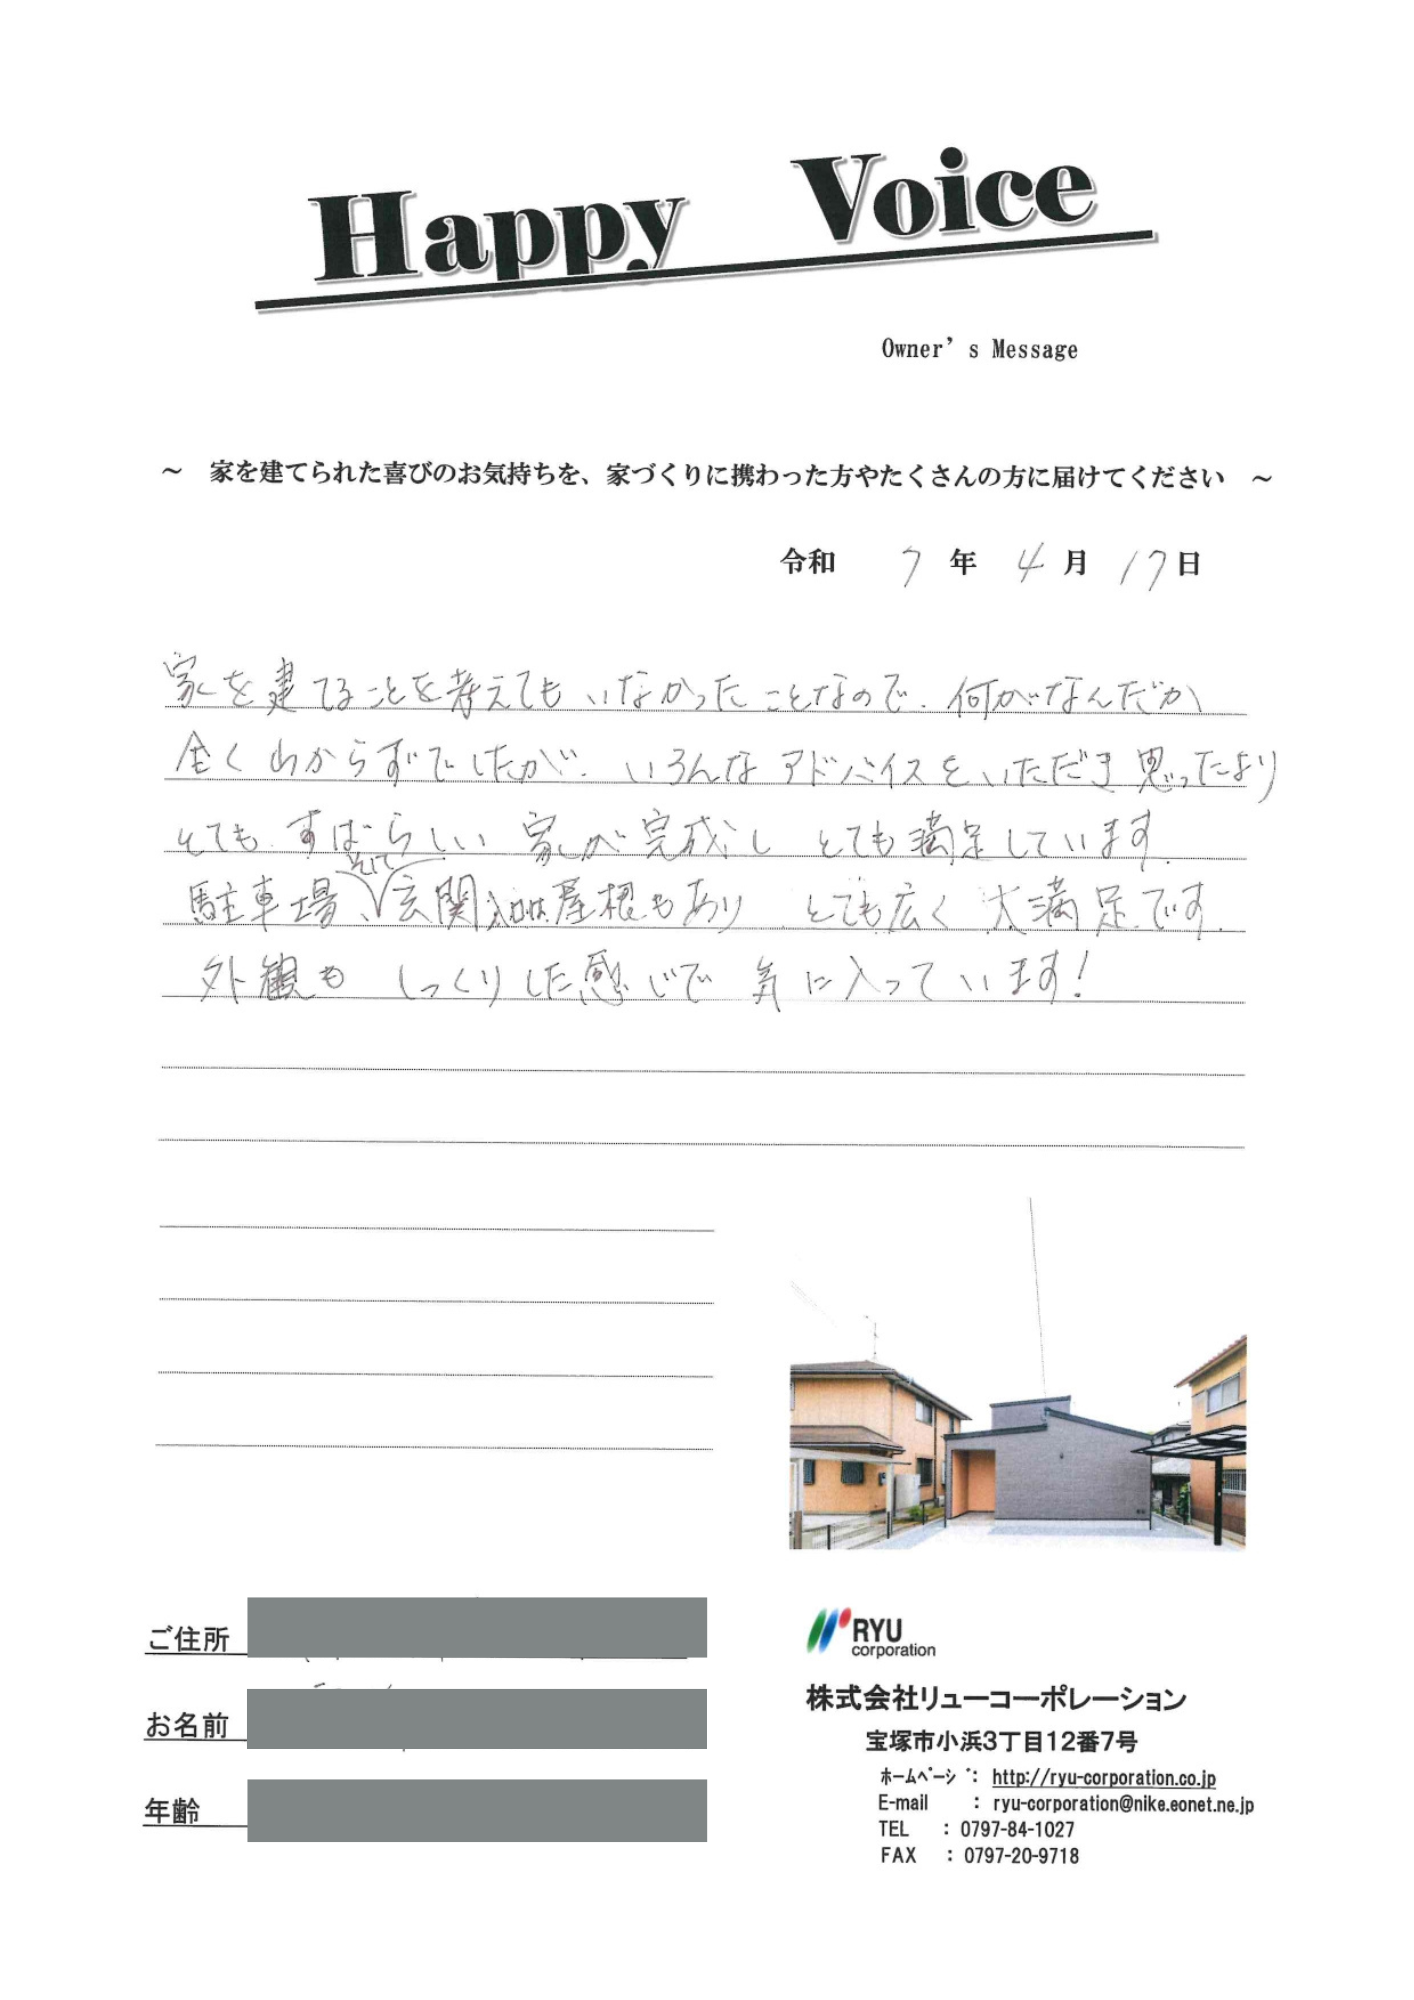 Happy Voice
Owner's Message
～ 家を建てられた喜びのお気持ちを、家づくりに携わった方やたくさんの方に届けてください ～
令和 7 年 4 月 17 日
家を建てることを考えてもいなかったことなので、何がなんだか
全くわからずでしたが、いろんなアドバイスをいただき思ったより
とても すばらしい 家が完成し とても満足しています。
駐車場、そして玄関入口は屋根もあり とても広く 大満足です。
外観も しっくりした感じで 気に入っています！
ご住所
お名前
年齢
RYU
corporation
株式会社リューコーポレーション
宝塚市小浜3丁目12番7号
ﾎｰﾑﾍﾟｰｼﾞ： http://ryu-corporation.co.jp
E-mail ： ryu-corporation@nike.eonet.ne.jp
TEL ：0797-84-1027
FAX ：0797-20-9718